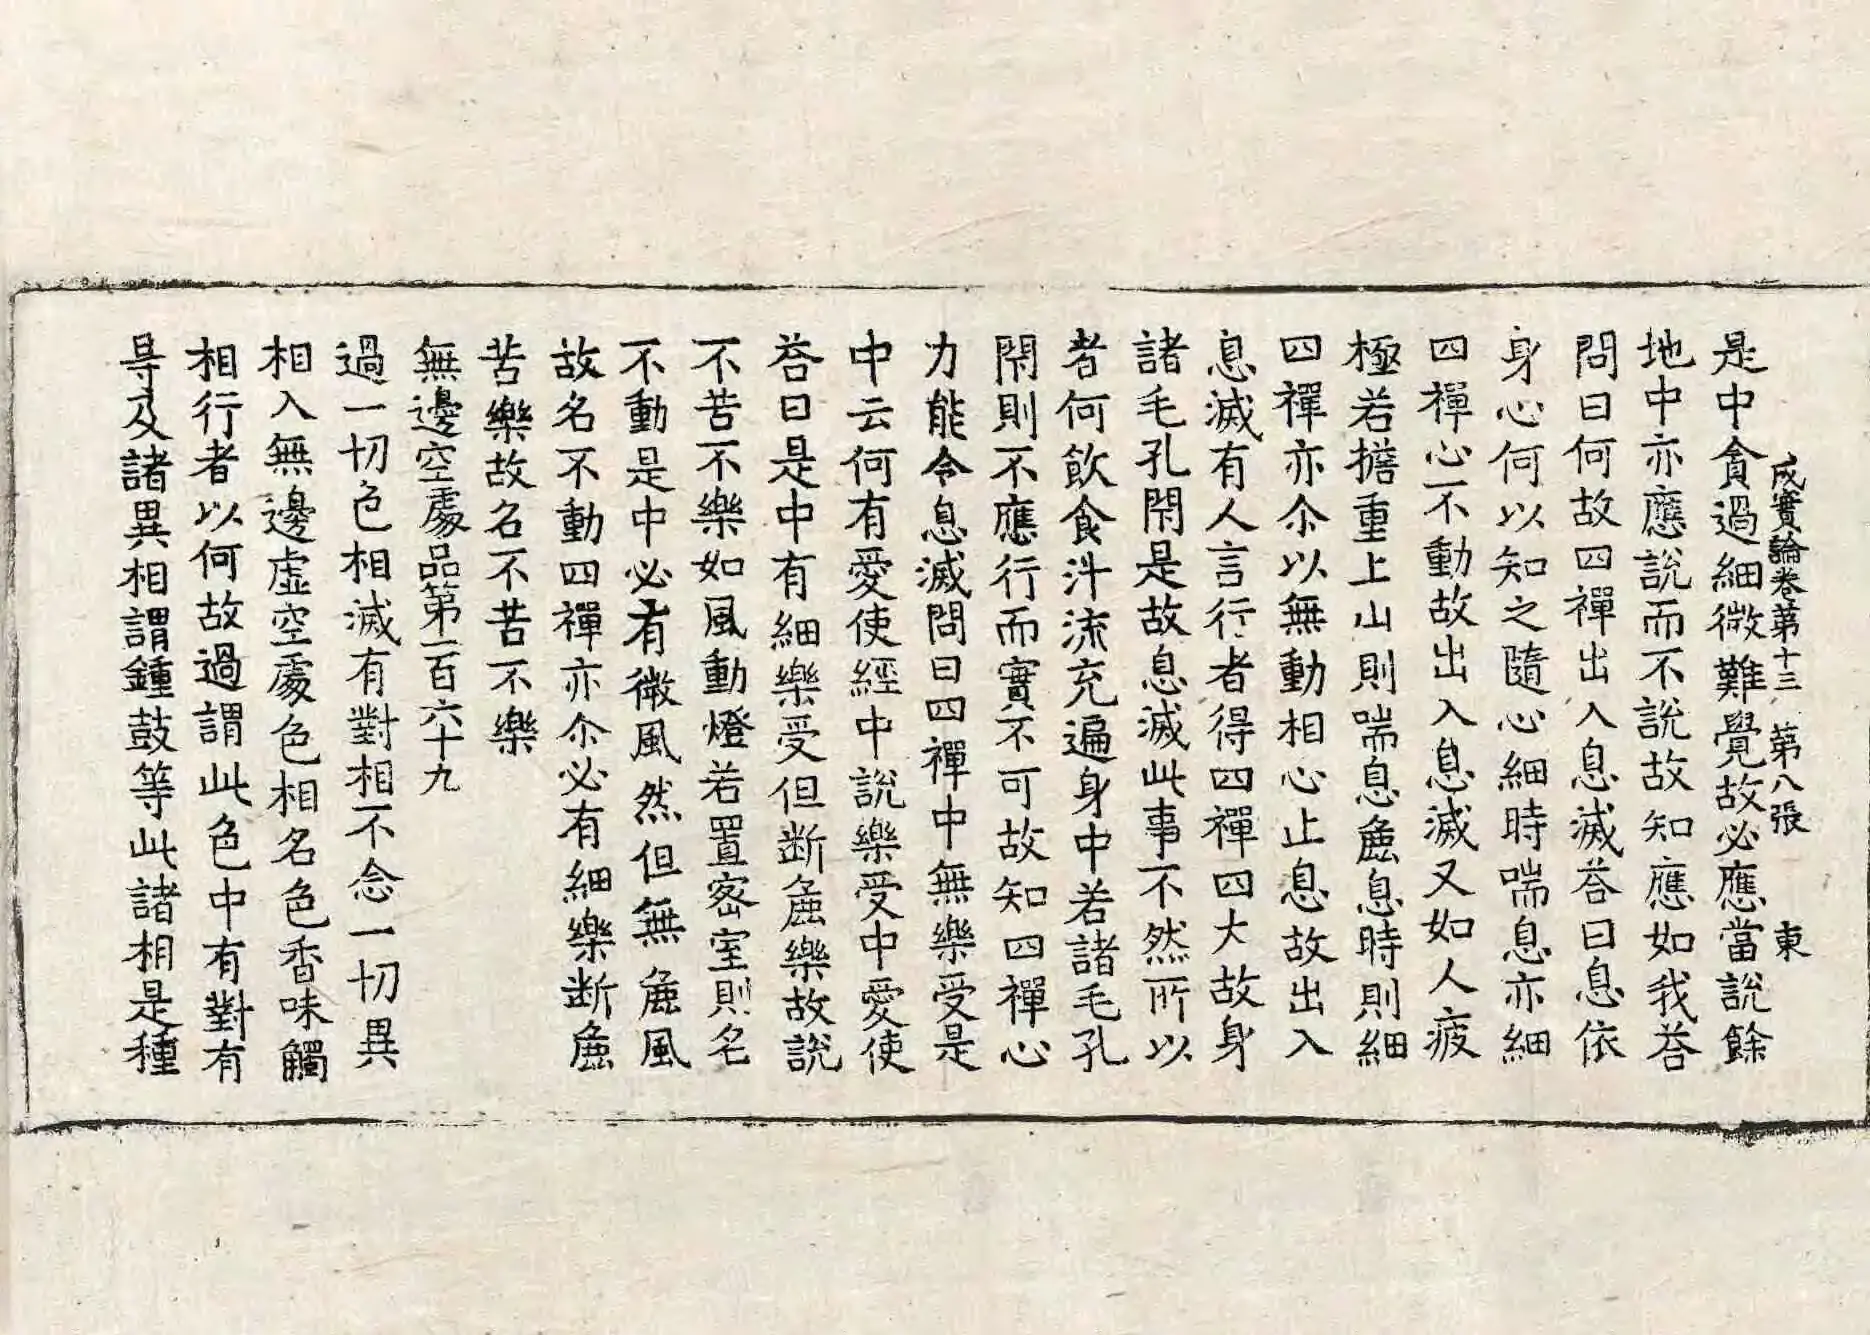 成實論卷第十三　第八張　東
是中貪過細微難覺故必應當說餘
地中亦應說而不說故知應如我荅
問曰何故四禪出入息滅荅曰息依
身心何以知之隨心細時喘息亦細
四禪心不動故出入息滅又如人疲
極若擔重上山則喘息麁息時則細
四禪亦尒以無動相心止息故出入
息滅有人言行者得四禪四大故身
諸毛孔閇是故息滅此事不然所以
者何飲食汁流充遍身中若諸毛孔
閇則不應行而實不可故知四禪心
力能令息滅問曰四禪中無樂受是
中云何有愛使經中說樂受中愛使
荅曰是中有細樂受但断麁樂故說
不苦不樂如風動燈若置密室則名
不動是中必有微風然但無麁風
故名不動四禪亦尒必有細樂断麁
苦樂故名不苦不樂
無邊空處品第一百六十九
過一切色相滅有對相不念一切異
相入無邊虛空處色相名色香味觸
相行者以何故過謂此色中有對有
㝵及諸異相謂鍾鼓等此諸相是種